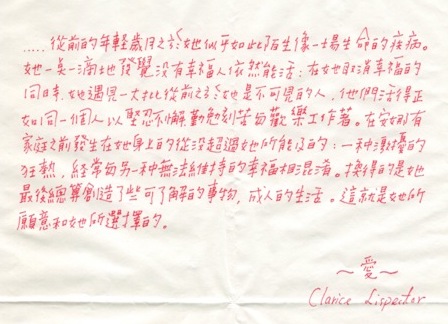 .....從前的年輕歲月之於她似乎如此陌生像一場生命的疾病。
她一點一滴地發覺沒有幸福人依然能活：在她取消幸福的
同時，她遇見一大批從前之於她是不可見的人，他們活得正
如同一個人以堅忍不懈勤勉刻苦與歡樂工作著。在安利有
家庭之前發生在她身上的從沒超過她所能及的：一種沖擾的
狂熱，經常與另一種無法維持的幸福相混淆。換得的是她
最後總算創造了些可了解的事物，成人的生活。這就是她所
願意和她所選擇的。
～愛～
Clarice Lispector